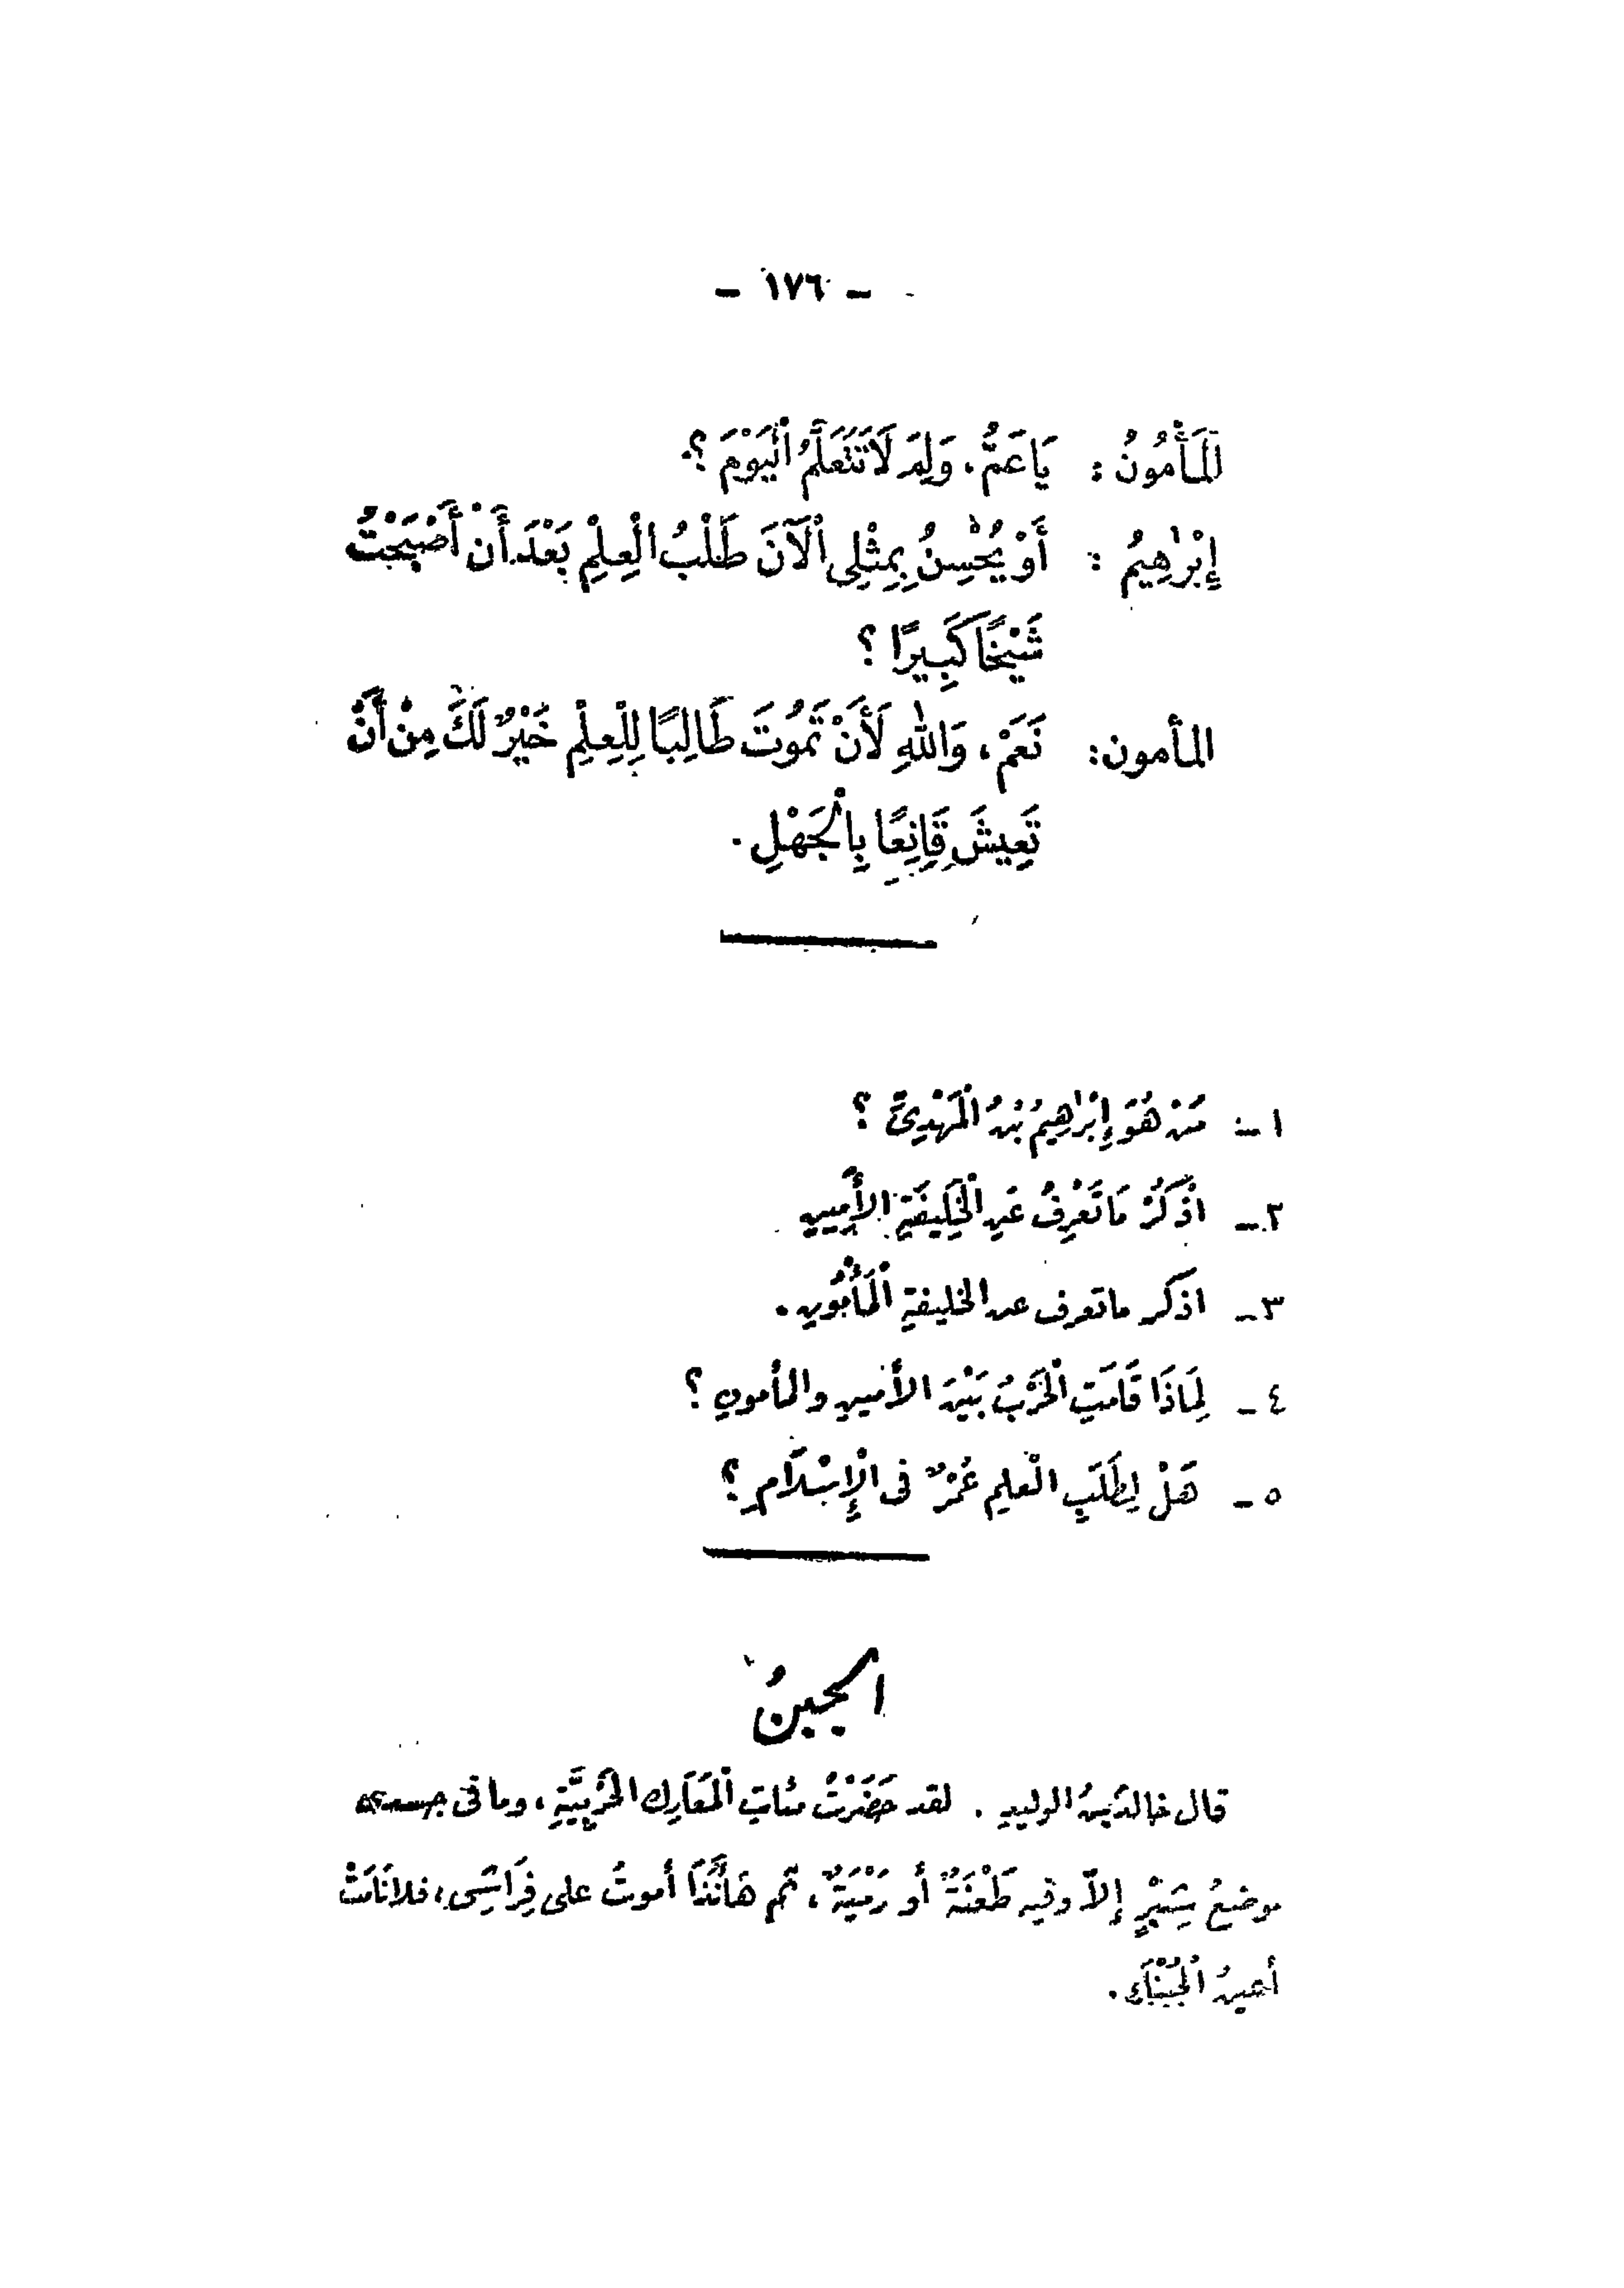 - ١٧٦ -
اَلْمَأْمُونُ : يَا عَمُّ، وَلِمَ لَا تَتَعَلَّمُ الْيَوْمَ ؟
إِبْرٰهِيمُ : أَوْ يُحْسِنُ بِمِثْلِي الْآنَ طَلَبُ الْعِلْمِ بَعْدَ أَنْ أَصْبَحْتُ
شَيْخًا كَبِيرًا ؟
المأمون: نَعَمْ، وَاللهِ لَأَنْ تَمُوتَ طَالِبًا لِلْعِلْمِ خَيْرٌ لَكَ مِنْ أَنْ
تَعِيشَ قَانِعًا بِالْجَهْلِ .
١ - مَنْ هُوَ إِبْرٰهِيمُ بْنُ الْمَهْدِيِّ ؟
٢ - اذْكُرْ مَا تَعْرِفُ عَنِ الْخَلِيفَةِ الأَمِينِ
٣ - اذكر ما تعرف عن الخليفةِ الْمَأْمُونِ .
٤ - لِمَاذَا قَامَتِ الْحَرْبُ بَيْنَ الأمينِ والمأمونِ ؟
٥ - هَلْ لِطَلَبِ الْعلمِ عُمْرٌ فى الْإِسْلَامِ ؟
الجبنُ
قال خالدُ بنُ الوليدِ . لقد حَضَرْتُ مئاتِ الْمَعَارِك الحَرْبِيَّةِ ، وما فى جسدى
موضعُ شِبْرٍ إلاّ وفيه طَعْنَةٌ أو رَمْيَةٌ ، ثم هَأَنَذَا أموتُ على فِرَاشِى ، فلا نَامَتْ
أعينُ الْجُبَنَاءِ .